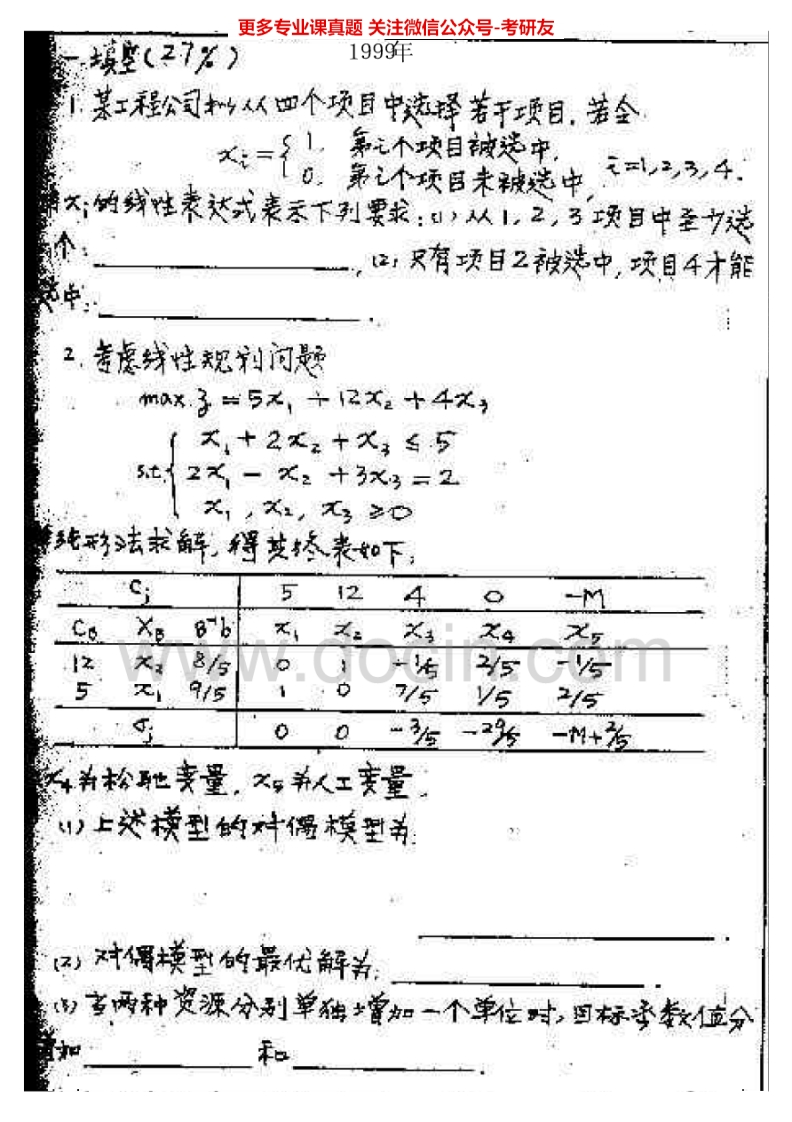 更多专业课真题 关注微信公众号-考研友
1999年
一.填空(27%)
1.某工程公司拟从四个项目中选择若干项目,若令
xᵢ={ 1. 第i个项目被选中,
0. 第i个项目未被选中, i=1,2,3,4.
xᵢ的线性表达式表示下列要求:(1)从1,2,3项目中至少选
个: ____________, (2)只有项目2被选中,项目4才能
选中: ____________.
2.考虑线性规划问题
max z = 5x₁ + 12x₂ + 4x₃
x₁ + 2x₂ + x₃ ≤ 5
s.t.{ 2x₁ - x₂ + 3x₃ = 2
x₁, x₂, x₃ ≥ 0
纯形法求解,得其终表如下:
Cⱼ 5 12 4 0 -M
C_B X_B B⁻¹b x₁ x₂ x₃ x₄ x₅
12 x₂ 8/5 0 1 -1/5 2/5 -1/5
5 x₁ 9/5 1 0 7/5 1/5 2/5
σⱼ 0 0 -3/5 -29/5 -M+2/5
www.docin.com
x₄为松弛变量, x₅为人工变量.
(1)上述模型的对偶模型为:
____________.
(2)对偶模型的最优解为: ____________.
(3)当两种资源分别单独增加一个单位时,目标函数值分
增加 ____________ 和 ____________.